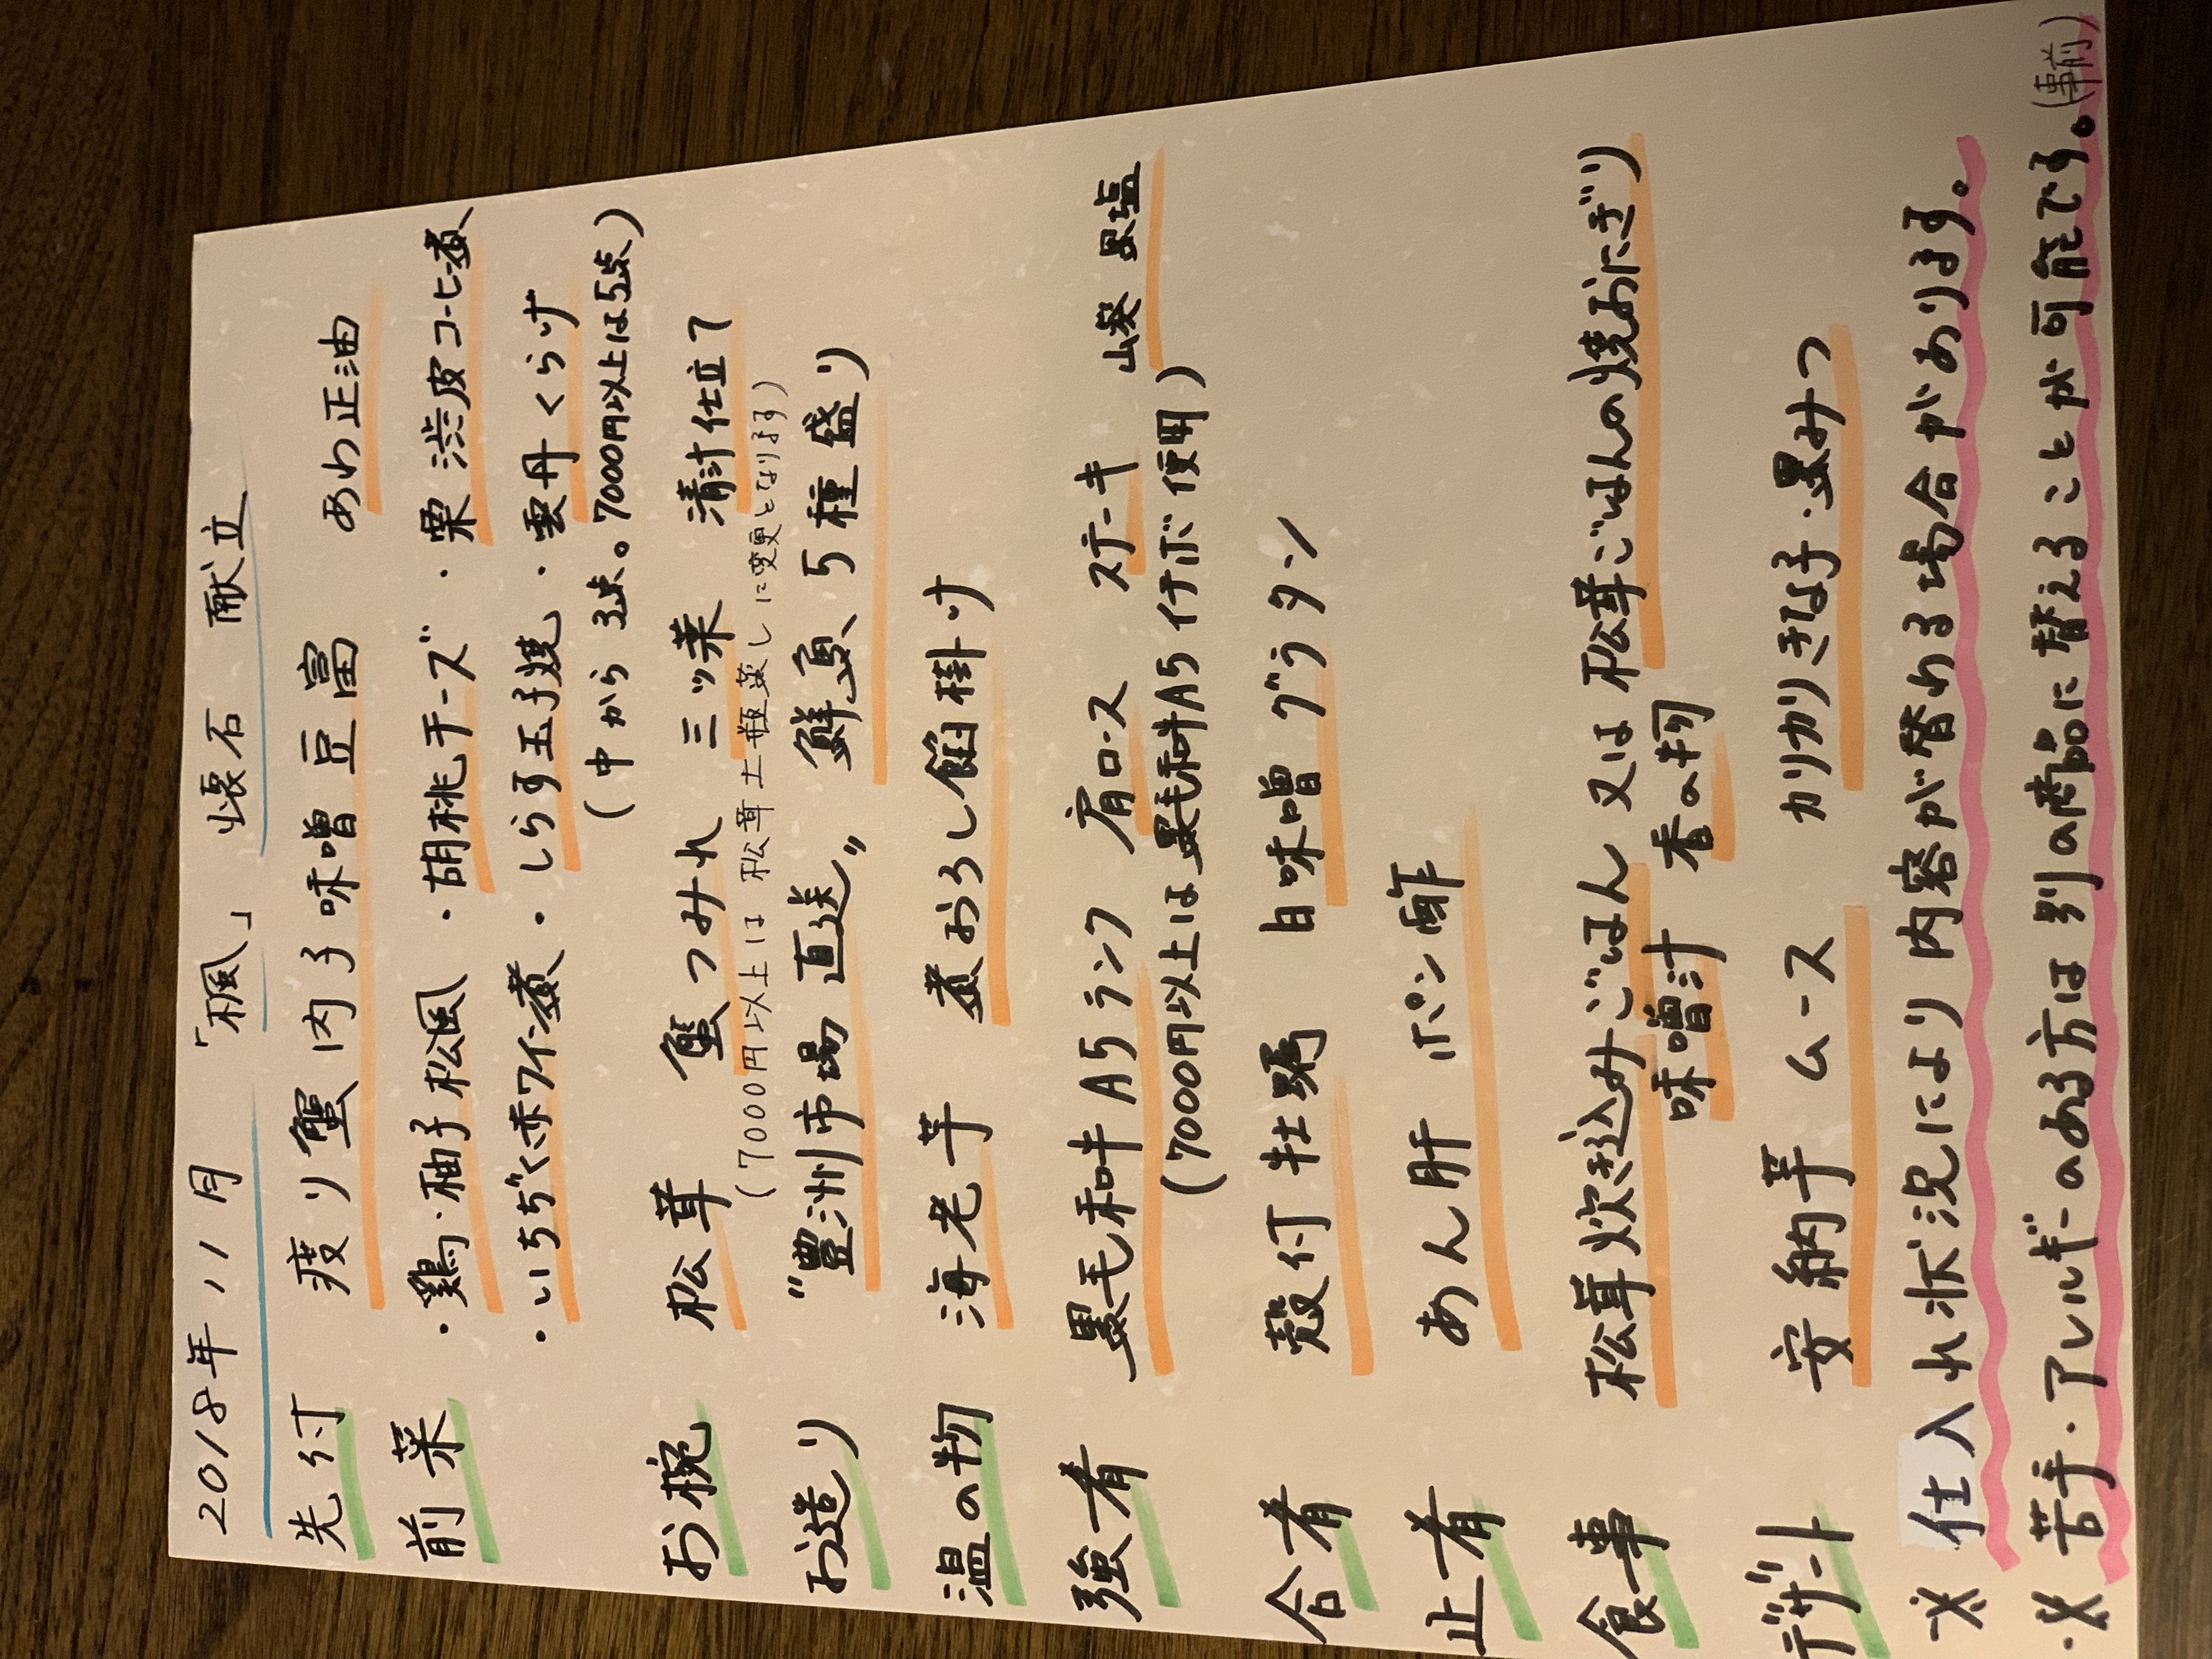 2018年 11月 「楓」 懐石 献立
先付 渡り蟹 内子 味噌 豆富 あわ正油
前菜 ・鶏・柚子 松風 ・胡桃チーズ ・栗 渋皮コーヒー煮
・いちぢく赤ワイン煮 ・しらす玉子焼 ・雲丹くらげ
(中から 3点。7000円以上は5点)
お椀 松茸 蟹つみれ 三ッ葉 清汁仕立て
(7000円以上は 松茸土瓶蒸しに変更となります)
お造り "豊洲市場 直送" 鮮魚、5種盛り
温の物 海老芋 煮おろし餡掛け
強肴 黒毛和牛 A5ランク 肩ロース ステーキ 山葵 黒塩
(7000円以上は 黒毛和牛A5 イチボ使用)
合肴 殻付 牡蠣 白味噌 グラタン
止肴 あん肝 ポン酢
食事 松茸炊き込みごはん 又は 松茸ごはんの焼おにぎり
味噌汁 香の物
デザート 安納芋 ムース カリカリきな子・黒みつ
※ 仕入れ状況により内容が替わる場合があります。
※ 苦手・アレルギーのある方は 別の商品に替えることが可能です。(事前)